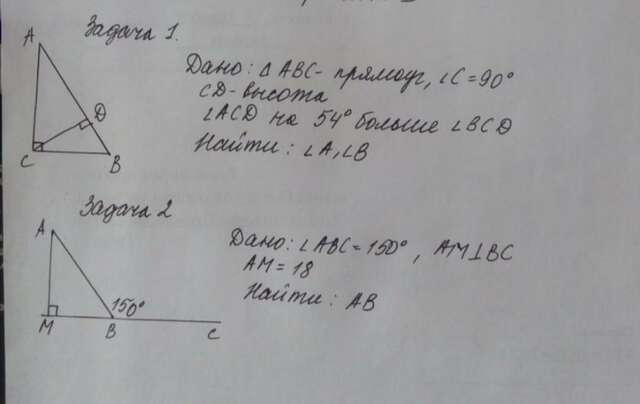 Задача 1.
A
Дано: △ABC - прямоуг, ∠C = 90°
CD - высота
∠ACD на 54° больше ∠BCD
Найти: ∠A, ∠B
D
C
B
Задача 2
A
Дано: ∠ABC = 150°, AM⊥BC
AM = 18
Найти: AB
150°
M
B
C